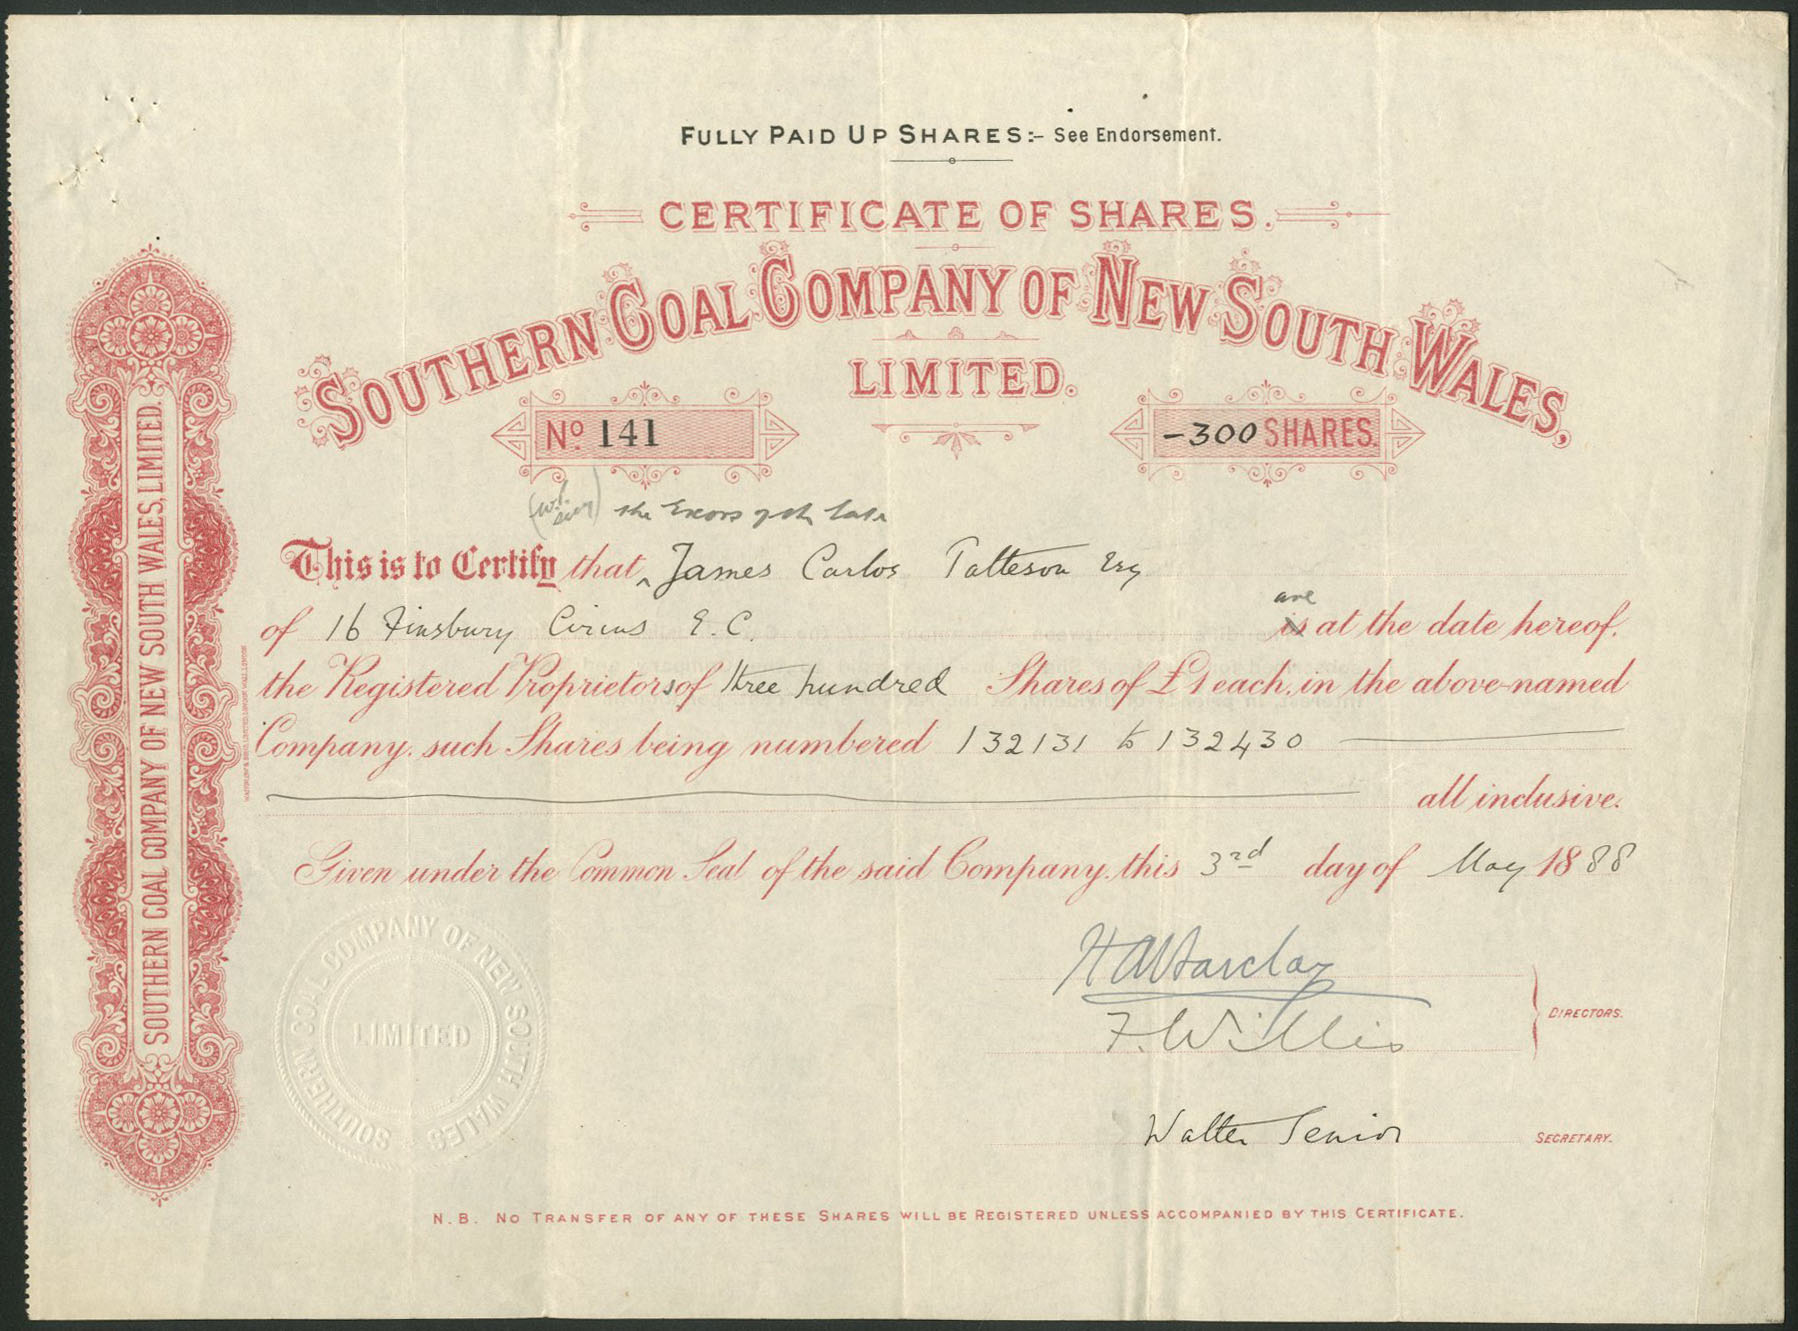 FULLY PAID UP SHARES:- See Endorsement.
CERTIFICATE OF SHARES.
SOUTHERN COAL COMPANY OF NEW SOUTH WALES,
LIMITED.
No 141
-300 SHARES.
the Execors of the late
This is to Certify that James Carlos Patteson Esq
of 16 Finsbury Circus E.C. is are at the date hereof,
the Registered Proprietors of three hundred Shares of £1 each, in the above-named
Company, such Shares being numbered 132131 to 132430
all inclusive.
Given under the Common Seal of the said Company, this 3rd day of May 1888
H A Barclay
F. Willis
DIRECTORS.
Walter Senior
SECRETARY.
N.B. NO TRANSFER OF ANY OF THESE SHARES WILL BE REGISTERED UNLESS ACCOMPANIED BY THIS CERTIFICATE.
SOUTHERN COAL COMPANY OF NEW SOUTH WALES, LIMITED.
SOUTHERN COAL COMPANY OF NEW SOUTH WALES
LIMITED